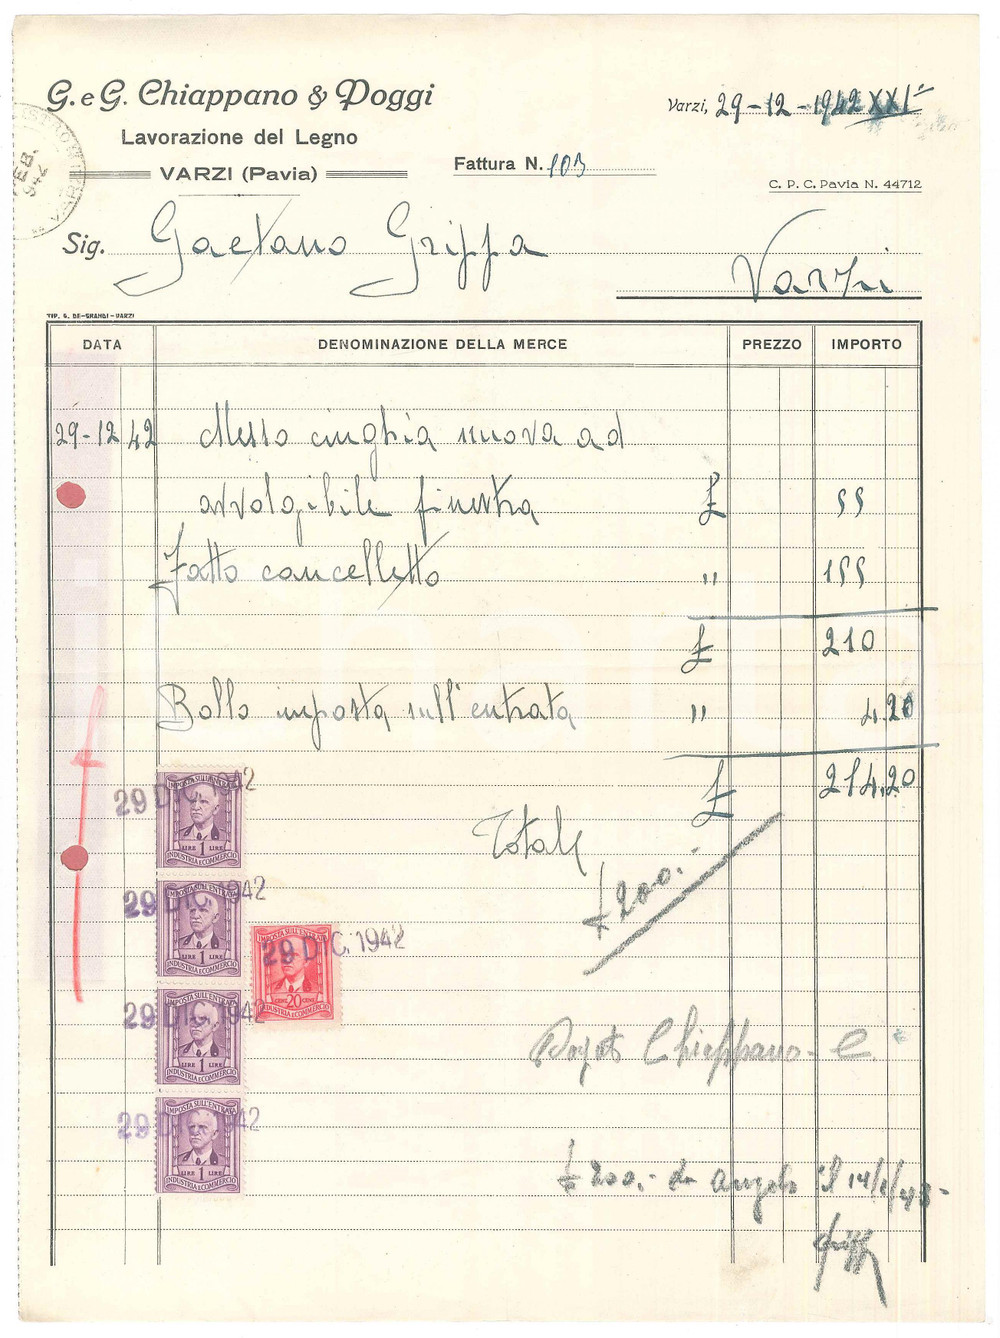 G. e G. Chiappano & Poggi
Lavorazione del Legno
VARZI (Pavia)
Varzi, 29-12-1942 XXI°
Fattura N. 103
C. P. C. Pavia N. 44712
Sig. Gaetano Griffa
Varzi
TIP. G. DE-GRANDI - VARZI
DATA DENOMINAZIONE DELLA MERCE PREZZO IMPORTO
29-12 42 Messo cinghia nuova ad
avvolgibile finestra £ 55
Fatto cancelletto " 155
£ 210
Bollo imposta sull'entrata " 4.20
£ 214,20
Totale
£ 200.-
IMPOSTA SULL'ENTRATA
LIRE 1 LIRE
INDUSTRIA E COMMERCIO
29 DIC. 1942
IMPOSTA SULL'ENTRATA
LIRE 1 LIRE
INDUSTRIA E COMMERCIO
29 DIC. 1942
IMPOSTA SULL'ENTRATA
CENT. 20 CENT.
INDUSTRIA E COMMERCIO
29 DIC. 1942
IMPOSTA SULL'ENTRATA
LIRE 1 LIRE
INDUSTRIA E COMMERCIO
29 DIC. 1942
Chiappano
IMPOSTA SULL'ENTRATA
LIRE 1 LIRE
INDUSTRIA E COMMERCIO
29 DIC. 1942
£ 200.- da Angelo il 14/1/43-